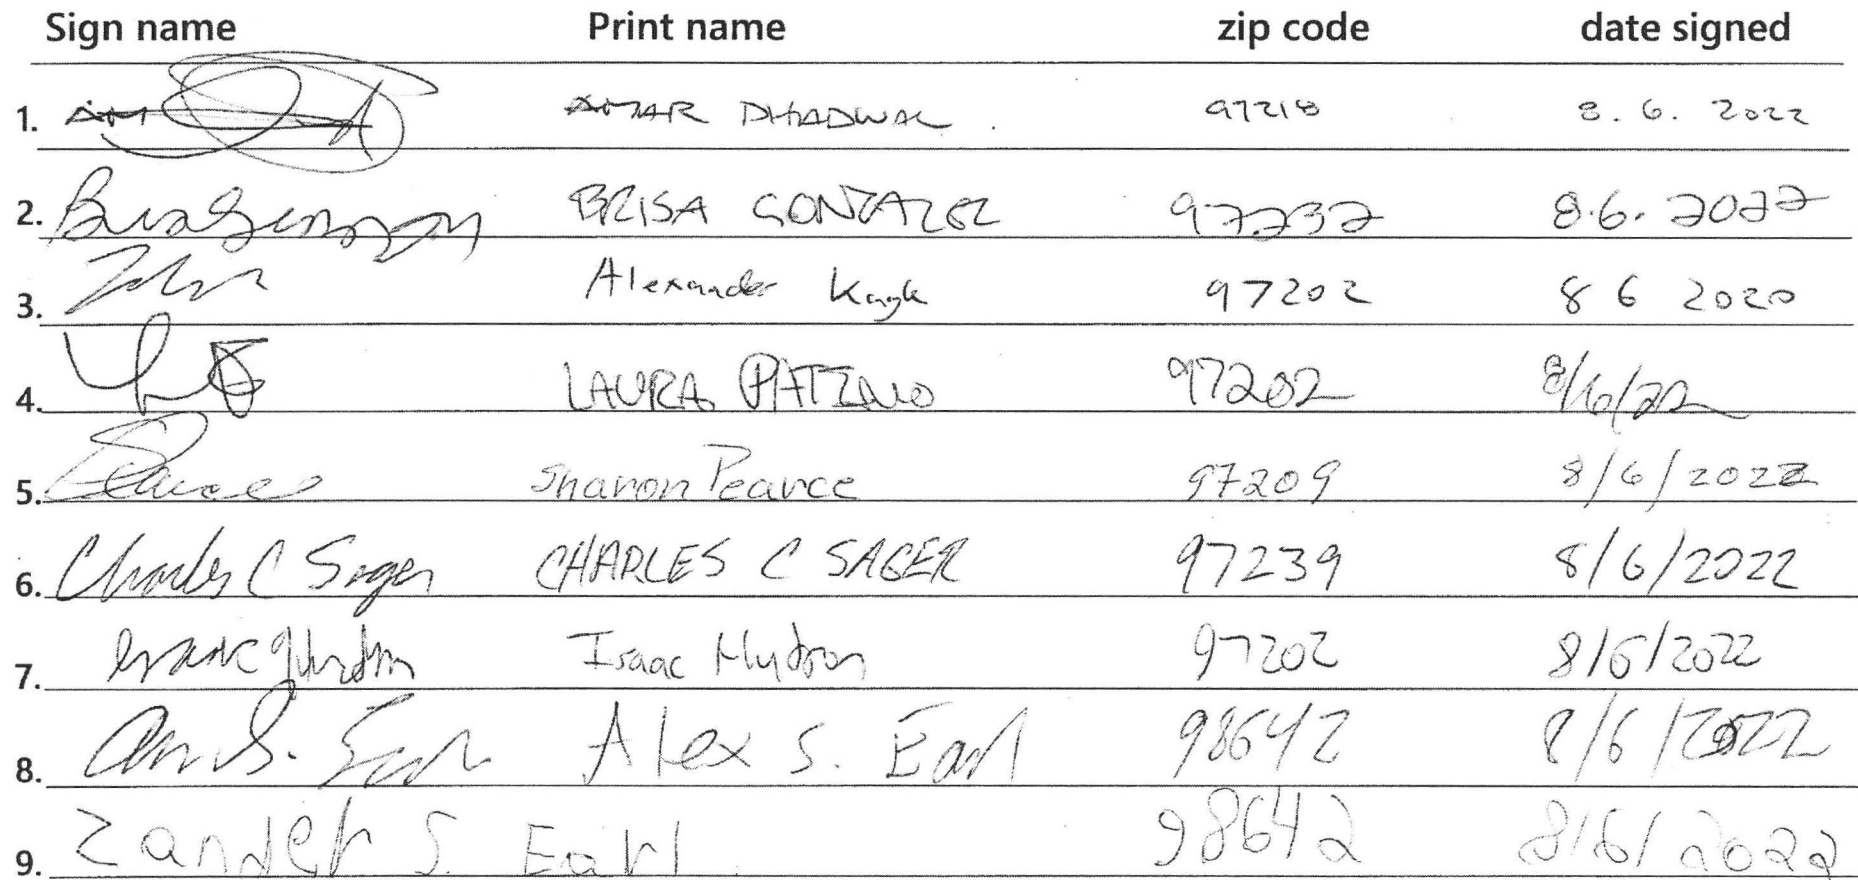 Sign name Print name zip code date signed
1. AMAR DHADWAL 97218 8.6.2022
2. BRISA GONZALEZ 97232 8.6.2022
3. Alexander Kagle 97202 8 6 2020
4. LAURA PATINO 97202 8/6/22
5. Pearce Sharon Pearce 97209 8/6/2022
6. Charles C Sager CHARLES C SAGER 97239 8/6/2022
7. Isaac 97202 8/6/2022
8. Alex S. Earl 98642 8/6/2022
9. Zander S. Earl 98642 8/6/2022